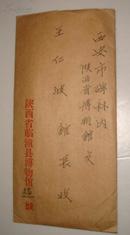 西安市碑林内
陕西省博物馆 交
王仁波 館長 收
陕西省临潼县博物馆
號